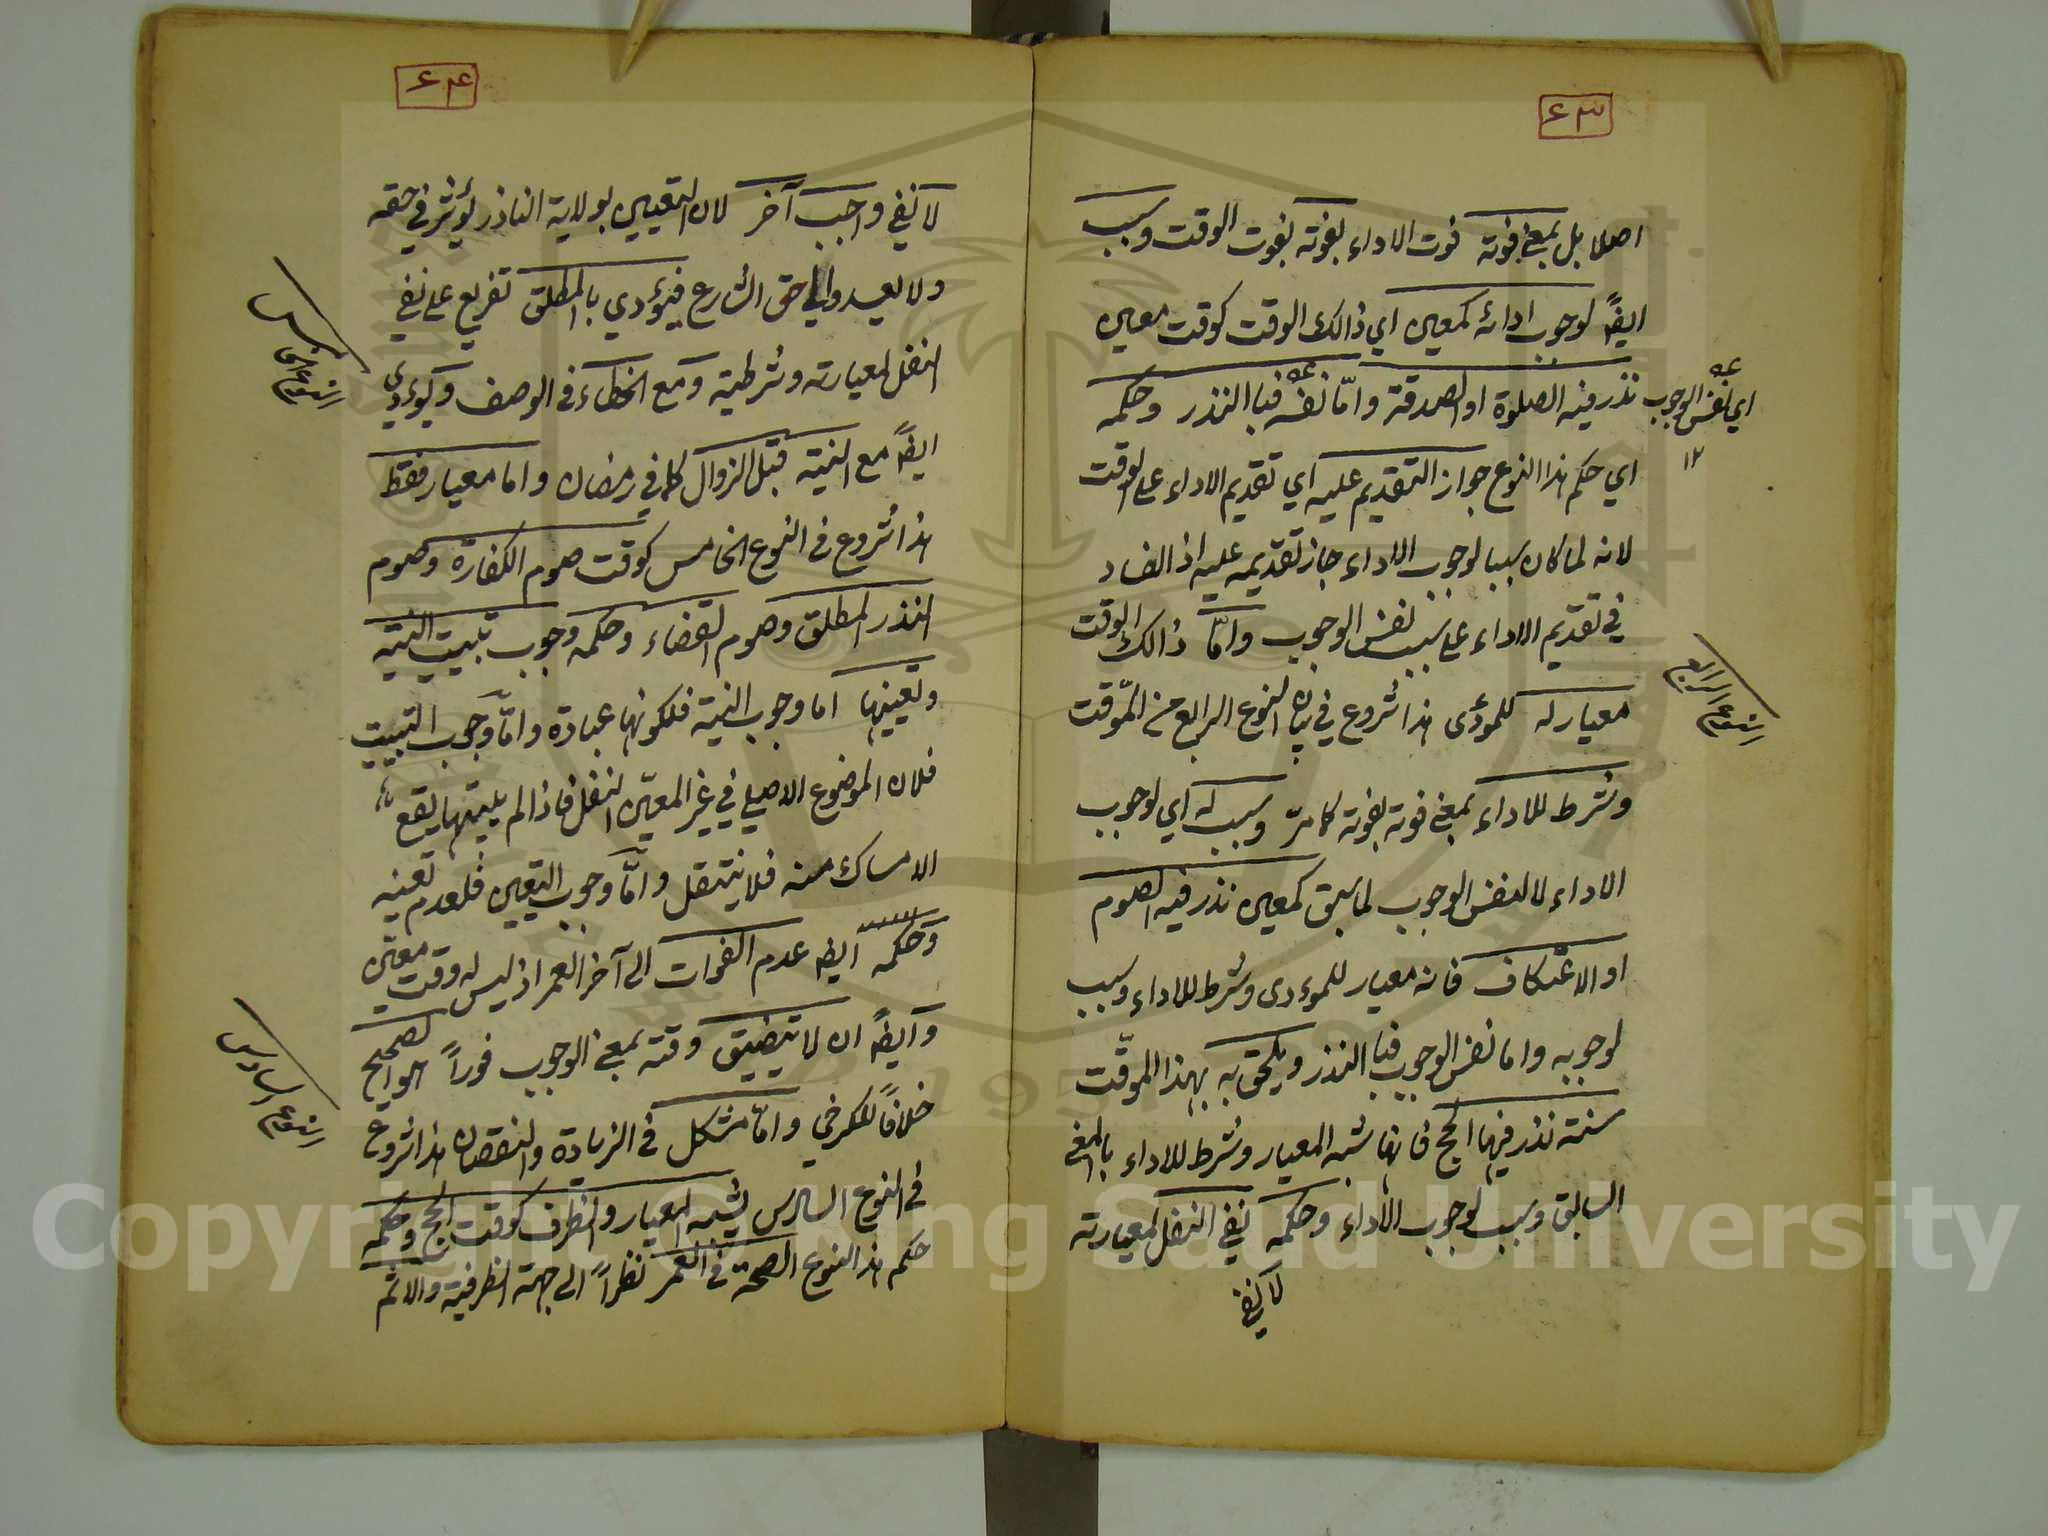 ٤٣
اصلا بل بمعنى فوته فوت الاداء بفوته بفوت الوقت وسبب
ايضاً لوجوب ادائه كمعين اي ذالك الوقت كوقت معين
نذر فيه الصلوة او الصدقة وامّا نفسه فبا النذر وحكمه
اي نفس الوجوب
١٢
اي حكم هذا النوع جواز التقديم عليه اي تقديم الاداء على الوقت
لانه لما كان سببا لوجوب الاداء جاز تقديمه عليه اذ الفساد
في تقديم الاداء على سبب نفس الوجوب وامّا ذالك الوقت
معيار له للمؤدى هذا شروع في بيان النوع الرابع من المؤقت
النوع الرابع
وشرط للاداء بمعنى فوته بفوته كما مرّ وسبب له اي لوجوب
الاداء لا لنفس الوجوب لما سبق كمعين نذر فيه الصوم
او الاعتكاف فانه معيار للموءدى وشرط للاداء وسبب
لوجوبه واما نفس الوجوب فبا النذر ويلحق به بهذا الموقّت
سنة نذر فيها الحج فانها شبه المعيار وشرط للاداء بالمعنى
السابق وسبب لوجوب الأداء وحكمه نفي النفل لمعيارته
لا نفي
٤٤
لا نفي واجب آخر لان التعيين بولاية الناذر يؤثر في حقه
ولا يعدو الى حق الشارع فيؤدي بالمطلق تفريع على نفي
النفل لمعيارته وشرطيته ومع الخطاء في الوصف ويؤدي
النوع الخامس
ايضاً مع النية قبل الزوال كما في رمضان واما معيار فقط
هذا شروع في النوع الخامس كوقت صوم الكفارة وصوم
النذر المطلق وصوم القضاء وحكمه وجوب تبييت النية
وتعينها اما وجوب النية فلكونها عبادة وامّا وجوب التبييت
فلان الموضوع الاصلي في غير المعيّن النفل فاذا لم يبيتها يقع
الامساك منه فلا ينتقل وامّا وجوب التعيين فلعدم تعينه
وحكمه ايضا عدم الفوات الى آخر العمر اذ ليس له وقت معيّن
وايضاً ان لا يتضيق وقته بمعنى الوجوب فوراً هو الصحيح
خلافاً للكرخي وامّا مشكل في الزيادة والنقصان هذا شروع
النوع السادس
في النوع السادس يشبه المعيار والظرف كوقت الحج وحكمه
حكم هذا النوع الصحة في العمر نظراً الى جهة الظرفية والاثم
Copyright © King Saud University
1957